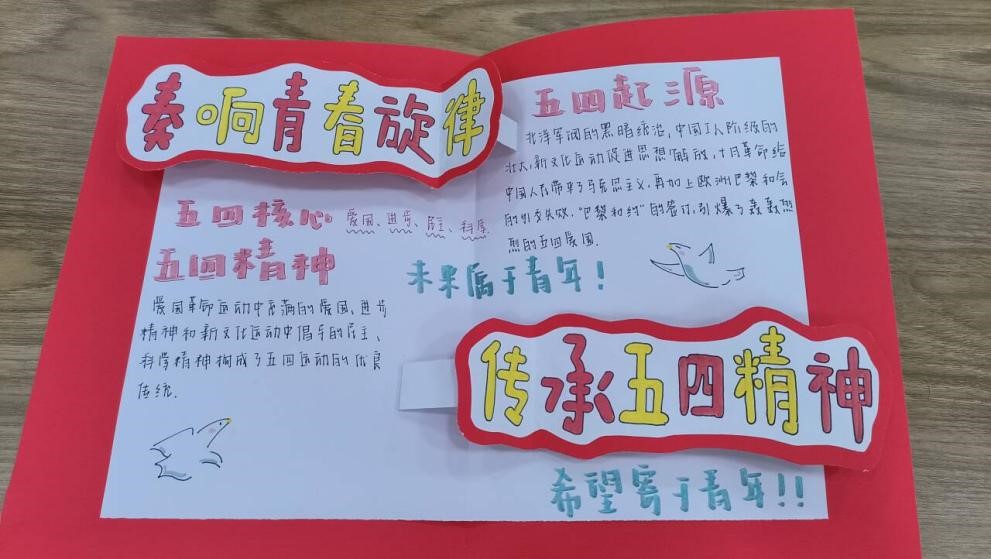 奏响青春旋律
五四核心 爱国、进步、民主、科学.
五四精神
爱国革命运动中充满的爱国、进步
精神和新文化运动中倡导的民主、
科学精神构成了五四运动的优良
传统.
五四起源
北洋军阀的黑暗统治,中国工人阶级的
壮大,新文化运动促进思想解放,十月革命给
中国人民带来了马克思主义,再加上欧洲巴黎和会
的外交失败,“巴黎和约”的签订,引爆了轰轰烈
烈的五四爱国.
未来属于青年!
传承五四精神
希望寄于青年!!